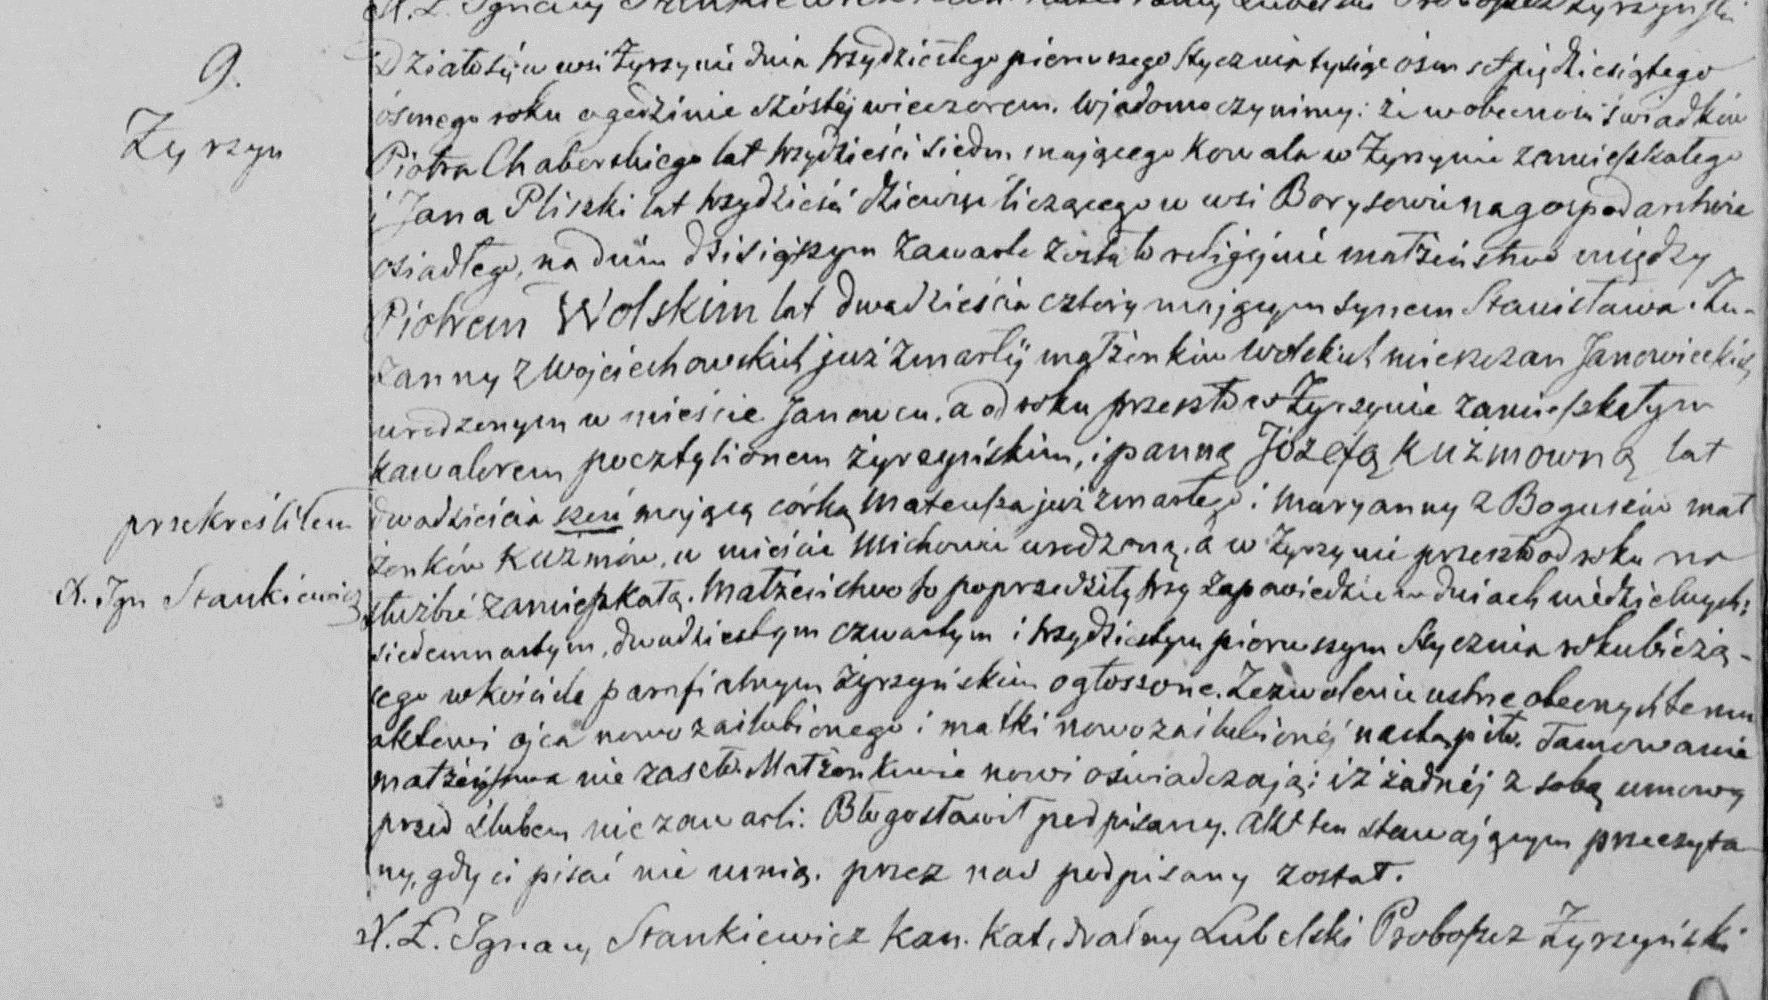 X. L. Ignacy Stankiewicz Lubelski Proboszcz Żyrzyński
9.
Żyrzyn
Działo się w wsi Żyrzynie dnia trzydziestego pierwszego Stycznia tysiąc ośm set pięćdziesiątego
ósmego roku o godzinie szóstéj wieczorem. Wiadomo czynimy: że w obecności świadków
Piotra Chaberskiego lat trzydzieści siedm mającego Kowala w Żyrzynie zamieszkałego
i Jana Pliszki lat trzydzieści dziewięć liczącego w wsi Borysowie na gospodarstwie
osiadłego, na dniu dzisiejszym zawarte zostało religijnie małżeństwo między
Piotrem Wolskim lat dwadzieścia cztery mającym synem Stanisława i Zu-
zanny z Wojciechowskich już zmarłéj małżonków Wolskich mieszczan Janowieckich,
urodzonym w mieście Janowcu, a od roku przeszło w Żyrzynie zamieszkałym
kawalerem pocztylionem żyrzyńskim, i panną Józefą Kuźmowną lat
dwadzieścia sześć mającą córką Mateusza już zmarłego i Maryanny z Bogusiów mał
żonków Kuźmów, w mieście Michowie urodzoną, a w Żyrzynie przeszło od roku na
służbie zamieszkałą. Małżeństwo to poprzedziły trzy zapowiedzie w dniach niedzielnych:
siedemnastym, dwudziestym czwartym i trzydziestym pierwszym Stycznia roku bieżą-
cego w kościele parafialnym Żyrzyńskim ogłoszone. Zezwolenie ustne obecnych temu
aktowi ojca nowozaślubionego i matki nowozaślubionéj nastąpiło. Tamowanie
małżeństwa nie zaszło. Małżonkowie nowi oświadczają: iż żadnéj z sobą umowy
przed ślubem nie zawarli. Błogosławił podpisany. Akt ten stawającym przeczyta
ny, gdy ci pisać nie umią, przez nas podpisany został.
X. L. Ignacy Stankiewicz Kan. Katedralny Lubelski Proboszcz Żyrzyński
przekreśliłem
X. Ign Stankiewicz